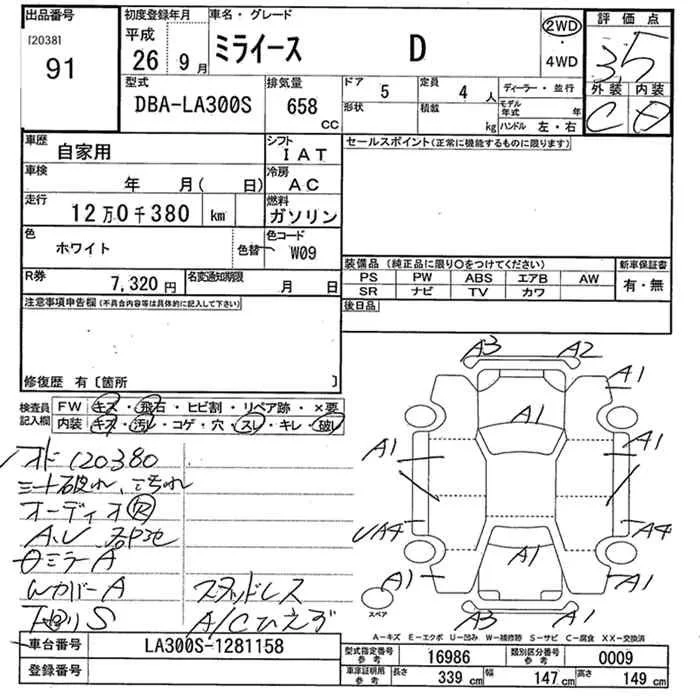 出品番号
120381
91
初度登録年月
平成
26 9月
車名・グレード
ミライース D
2WD
・
4WD
評価点
3.5
外装 内装
C
型式
DBA-LA300S
排気量
658
CC
ドア 5
形状
定員 4 人
積載 kg
ディーラー・並行
モデル年式 年
ハンドル 左・右
車歴
自家用
シフト
IAT
車検
年 月( 日)
冷房
AC
走行
12万0千380 km
燃料
ガソリン
色
ホワイト
色替
色コード
W09
R券
7,320円
名変通知期限
月 日
セールスポイント(正常に機能するものに限ります)
装備品(純正品に限り〇をつけてください)
新車保証書
PS PW ABS エアB AW
SR ナビ TV カワ
有・無
後日品
注意事項申告欄(不具合内容等は具体的に記入して下さい)
修復歴 有〔箇所 〕
検査員
記入欄
FW キズ・飛石・ヒビ割・リペア跡・×要
内装 キズ・汚レ・コゲ・穴・スレ・キレ・破レ
オドι120380
シート破れ、よごれ
オーディオ欠
A.U 各所他
ミラーA
WカバーA スタッドレス
下廻りS A/Cひえず
A3 A2
A1
A1
A1 A1
UA4 A4
A1
A1 A1
A3 A1
スペア
A-キズ E-エクボ U-凹み W-補修跡 S-サビ C-腐食 XX-交換済
車台番号
LA300S-1281158
登録番号
型式指定番号
参考
16986
類別区分番号
参考
0009
車庫証明用
参考
長さ 339 cm
幅 147 cm
高さ 149 cm